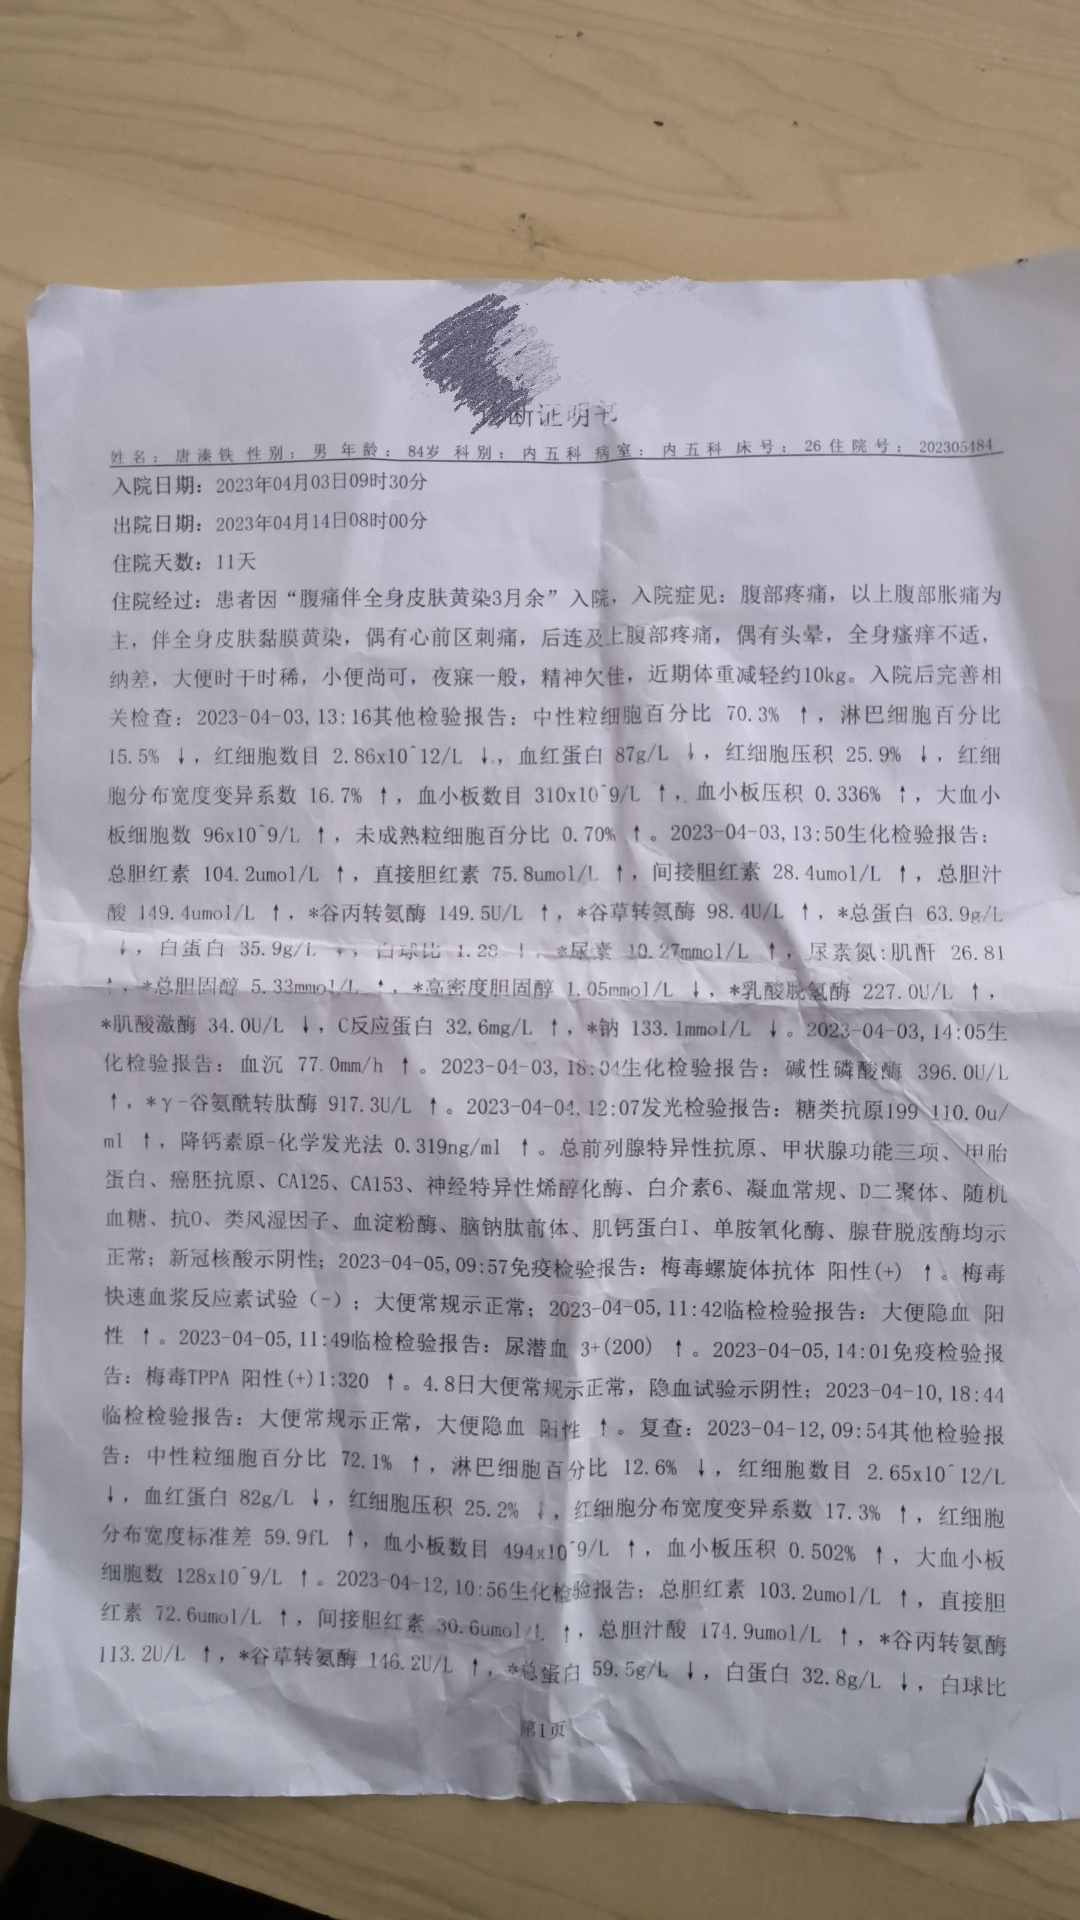 断证明书
姓名：唐溱铁 性别：男 年龄：84岁 科别：内五科 病室：内五科 床号：26 住院号：202305484
入院日期：2023年04月03日09时30分
出院日期：2023年04月14日08时00分
住院天数：11天
住院经过：患者因“腹痛伴全身皮肤黄染3月余”入院，入院症见：腹部疼痛，以上腹部胀痛为
主，伴全身皮肤黏膜黄染，偶有心前区刺痛，后连及上腹部疼痛，偶有头晕，全身瘙痒不适，
纳差，大便时干时稀，小便尚可，夜寐一般，精神欠佳，近期体重减轻约10kg。入院后完善相
关检查：2023-04-03,13:16其他检验报告：中性粒细胞百分比 70.3% ↑，淋巴细胞百分比
15.5% ↓，红细胞数目 2.86x10^12/L ↓，血红蛋白 87g/L ↓，红细胞压积 25.9% ↓，红细
胞分布宽度变异系数 16.7% ↑，血小板数目 310x10^9/L ↑，血小板压积 0.336% ↑，大血小
板细胞数 96x10^9/L ↑，未成熟粒细胞百分比 0.70% ↑。2023-04-03,13:50生化检验报告：
总胆红素 104.2umol/L ↑，直接胆红素 75.8umol/L ↑，间接胆红素 28.4umol/L ↑，总胆汁
酸 149.4umol/L ↑，*谷丙转氨酶 149.5U/L ↑，*谷草转氨酶 98.4U/L ↑，*总蛋白 63.9g/L
↓，白蛋白 35.9g/L ↓，白球比 1.28 ↓，*尿素 10.27mmol/L ↑，尿素氮:肌酐 26.81
↑，*总胆固醇 5.33mmol/L ↑，*高密度胆固醇 1.05mmol/L ↓，*乳酸脱氢酶 227.0U/L ↑，
*肌酸激酶 34.0U/L ↓，C反应蛋白 32.6mg/L ↑，*钠 133.1mmol/L ↓。2023-04-03,14:05生
化检验报告：血沉 77.0mm/h ↑。2023-04-03,18:04生化检验报告：碱性磷酸酶 396.0U/L
↑，*γ-谷氨酰转肽酶 917.3U/L ↑。2023-04-04,12:07发光检验报告：糖类抗原199 110.0u/
ml ↑，降钙素原-化学发光法 0.319ng/ml ↑。总前列腺特异性抗原、甲状腺功能三项、甲胎
蛋白、癌胚抗原、CA125、CA153、神经特异性烯醇化酶、白介素6、凝血常规、D二聚体、随机
血糖、抗O、类风湿因子、血淀粉酶、脑钠肽前体、肌钙蛋白I、单胺氧化酶、腺苷脱胺酶均示
正常；新冠核酸示阴性；2023-04-05,09:57免疫检验报告：梅毒螺旋体抗体 阳性(+) ↑。梅毒
快速血浆反应素试验（-）；大便常规示正常；2023-04-05,11:42临检检验报告：大便隐血 阳
性 ↑。2023-04-05,11:49临检检验报告：尿潜血 3+(200) ↑。2023-04-05,14:01免疫检验报
告：梅毒TPPA 阳性(+)1:320 ↑。4.8日大便常规示正常，隐血试验示阴性；2023-04-10,18:44
临检检验报告：大便常规示正常，大便隐血 阳性 ↑。复查：2023-04-12,09:54其他检验报
告：中性粒细胞百分比 72.1% ↑，淋巴细胞百分比 12.6% ↓，红细胞数目 2.65x10^12/L
↓，血红蛋白 82g/L ↓，红细胞压积 25.2% ↓，红细胞分布宽度变异系数 17.3% ↑，红细胞
分布宽度标准差 59.9fL ↑，血小板数目 494x10^9/L ↑，血小板压积 0.502% ↑，大血小板
细胞数 128x10^9/L ↑。2023-04-12,10:56生化检验报告：总胆红素 103.2umol/L ↑，直接胆
红素 72.6umol/L ↑，间接胆红素 30.6umol/L ↑，总胆汁酸 174.9umol/L ↑，*谷丙转氨酶
113.2U/L ↑，*谷草转氨酶 146.2U/L ↑，*总蛋白 59.5g/L ↓，白蛋白 32.8g/L ↓，白球比
第1页